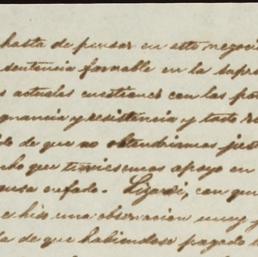 hasta de pensar en este negoci
sentencia favorable en la supre
s actuales cuestiones con las po
gnancia y resistencia y todo
de que no obtendriamos jus
cho que tuviesemos apoyo en
enfado. Lizardi, con qu
e hizo una observacion muy
de que habiendose pagado